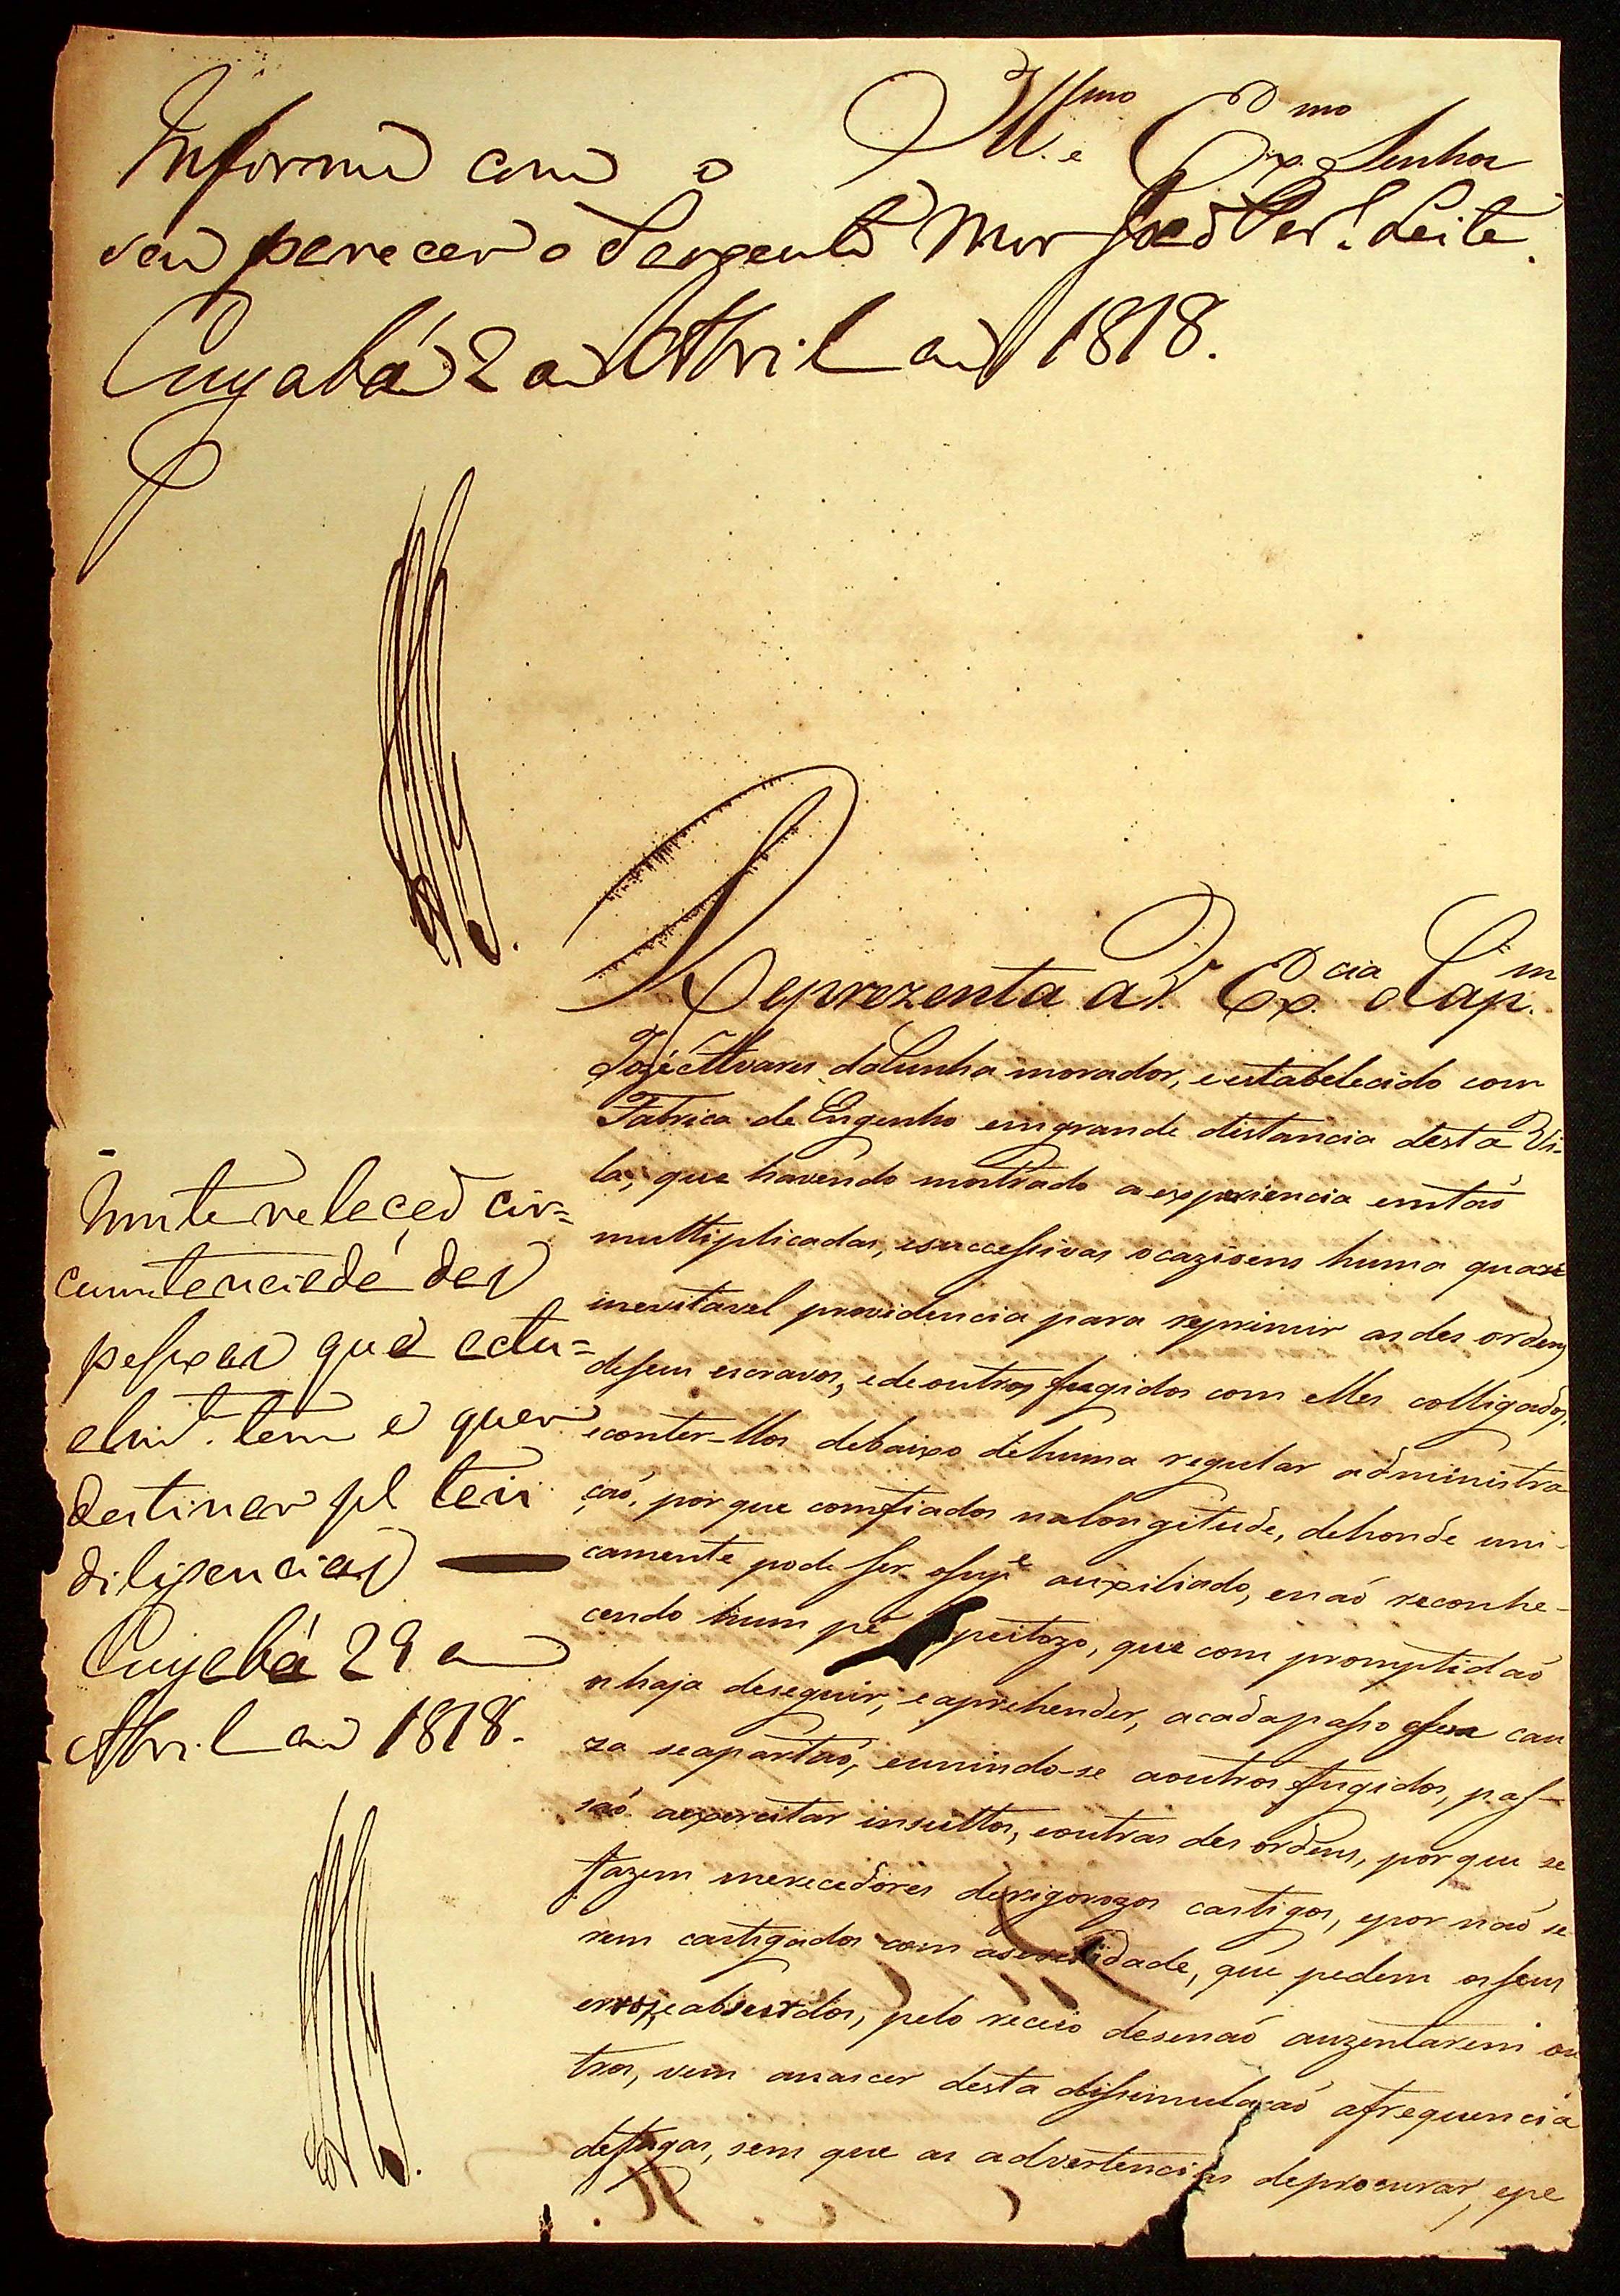 Ill.mo e Ex.mo Senhor
Informe com o
seu parecer o Sargento Mor Leite.
Cuyabá 2 de Abril de 1818.
Reprezenta a V. Ex.cia o Cap.m
Jozé Alvares da Cunha morador, e estabelecido com
Fabrica de Engenho em grande distancia desta Vi-
la, que havendo mostrado a experiencia em taó
multiplicadas, e successivas ocazioens huma quaze
inevitavel providencia para reprimir as des ordens
de seus escravos, e de outros fugidos com elles colligados,
e conter-llos debaixo de huma regular administra
çaó, por que comfiados na longitude, de honde uni-
camente pode ser o Sup.e auxiliado, e naó reconhe-
cendo hum pê que com promptidaó
o haja de seguir, e aprehender, a cada passo cau
za se apartaó, e unindo-se a outros fugidos, pas-
saó a exercitar insultos, e outras des ordens, por que se
fazem merecedores de rigorozos castigos, e por naó se
rem castigados com a severidade, que pedem os seus
erros, e absurdos, pelo receio de se naó auzentarem ou
tros, vem a nascer desta dissimulaçaó a frequencia
de fugas, sem que as advertencias de procurar, e pe
Junte relaçaõ cir=
cunstanciada das
pessoas que actu=
alm.te tem e quer
destinar p.a tais
diligencias
Cuyabá 29 de
Abril de 1818.